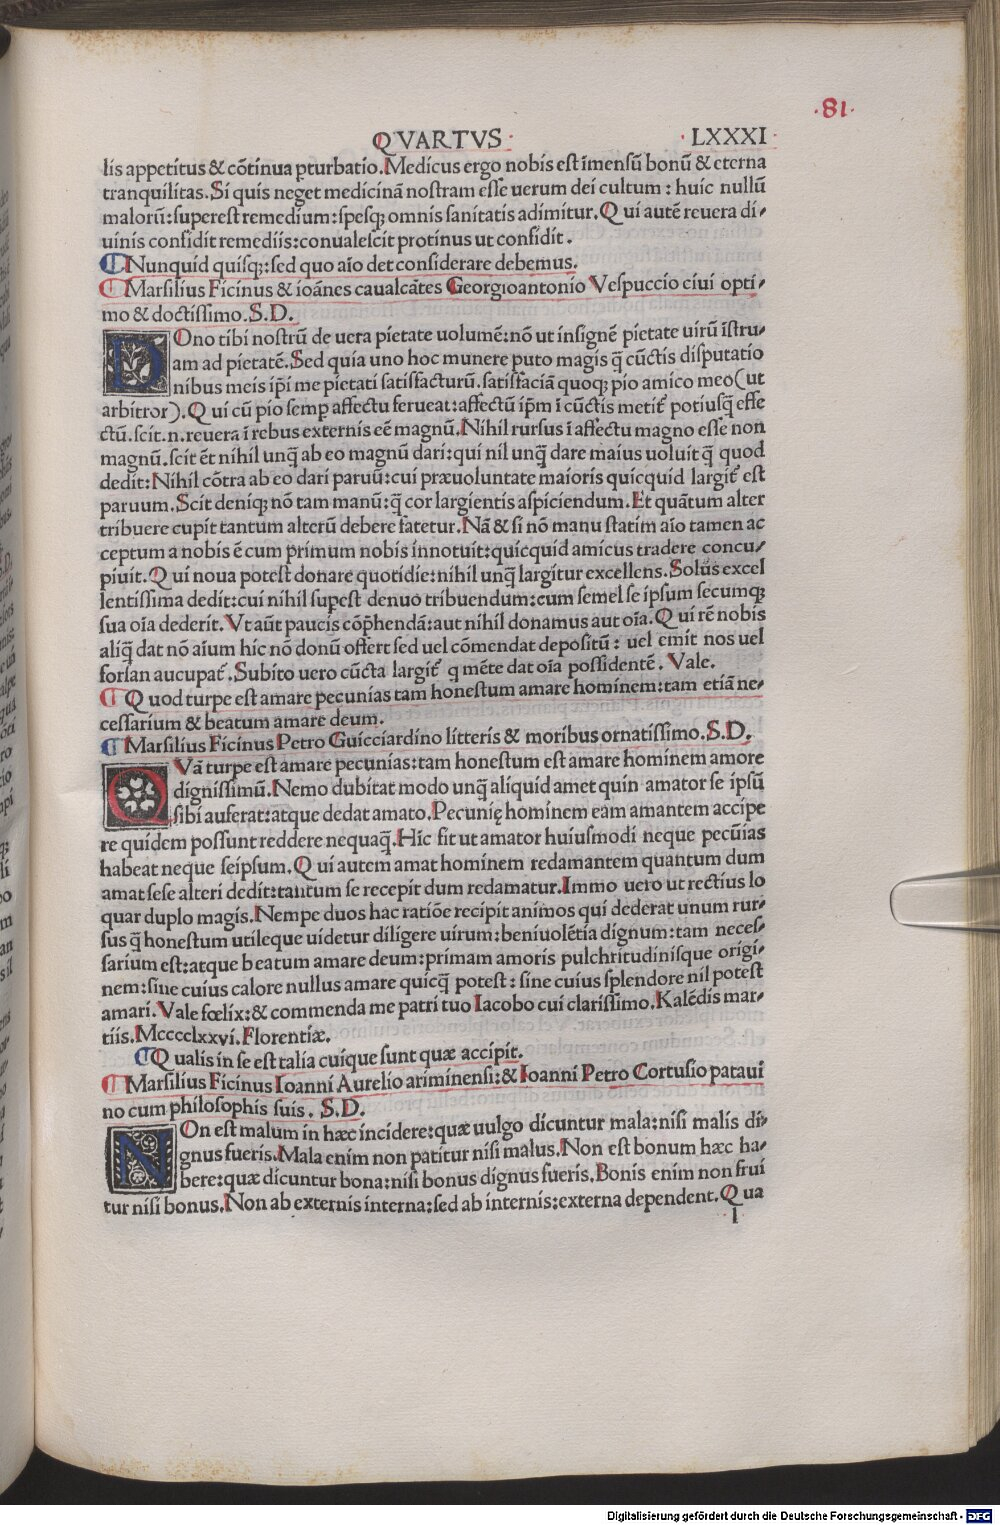 ·81·
QVARTVS · · LXXXI ·
lis appetitus & cõtinua ꝑturbatio. Medicus ergo nobis est īmensũ bonũ & eterna
tranquilitas. Si quis neget medicinã nostram esse uerum dei cultum: huic nullũ
malorũ: superest remedium: spesqꝫ omnis sanitatis adimitur. Qui autẽ reuera di⸗
uinis confidit remediis: conualescit protinus ut confidit.
Nunquid quisqꝫ: sed quo aĩo det considerare debemus.
Marsilius Ficinus & ioãnes caualcãtes Georgioantonio Vespuccio ciui opti⸗
mo & doctissimo. S. D.
DOno tibi nostrũ de uera pietate uolumẽ: nõ ut insignẽ pietate uirũ ĩstru⸗
am ad pietatẽ. Sed quia uno hoc munere puto magis q̃ cũctis disputatio
nibus meis ip̃i me pietati satisfacturũ. satisfaciã quoqꝫ pio amico meo (ut
arbitror). Qui cũ pio semꝑ affectu ferueat: affectũ ip̃m ĩ cũctis metit᷑ potiusq̃ effe
ctũ. scit. n. reuera ĩ rebus externis eẽ magnũ. Nihil rursus ĩ affectu magno esse non
magnũ. scit ẽt nihil unq̃ ab eo magnũ dari: qui nil unq̃ dare maius uoluit q̃ quod
dedit: Nihil cõtra ab eo dari paruũ: cui præuoluntate maioris quicquid largit᷑ est
paruum. Scit deniqꝫ nõ tam manũ: q̃ cor largientis aspiciendum. Et quãtum alter
tribuere cupit tantum alterũ debere fatetur. Nã & si nõ manu statim aĩo tamen ac
ceptum a nobis ẽ cum primum nobis innotuit: quicquid amicus tradere concu⸗
piuit. Qui noua potest donare quotidie: nihil unq̃ largitur excellens. Solus excel
lentissima dedit: cui nihil suꝑest denuo tribuendum: cum semel se ipsum secumqꝫ
sua oĩa dederit. Vt aũt paucis cõp̃hendã: aut nihil donamus aut oĩa. Qui rẽ nobis
aliq̃ dat nõ aĩum hic nõ donũ offert sed uel cõmendat depositũ: uel emit nos uel
forsan aucupat᷑. Subito uero cũcta largit᷑ q mẽte dat oĩa possidentẽ. Vale.
Quod turpe est amare pecunias tam honestum amare hominem: tam etiã ne⸗
cessarium & beatum amare deum.
Marsilius Ficinus Petro Guicciardino litteris & moribus ornatissimo. S. D.
QVã turpe est amare pecunias: tam honestum est amare hominem amore
dignissimũ. Nemo dubitat modo unq̃ aliquid amet quin amator se ipsũ
sibi auferat: atque dedat amato. Pecunię hominem eam amantem accipe
re quidem possunt reddere nequaq̃. Hic fit ut amator huiusmodi neque pecũias
habeat neque seipsum. Qui autem amat hominem redamantem quantum dum
amat sese alteri dedit: tantum se recepit dum redamatur. Immo uero ut rectius lo
quar duplo magis. Nempe duos hac ratiõe recipit animos qui dederat unum rur⸗
sus q̃ honestum utileque uidetur diligere uirum: beniuolẽtia dignum: tam neces⸗
sarium est: atque beatum amare deum: primam amoris pulchritudinisque origi⸗
nem: sine cuius calore nullus amare quicq̃ potest: sine cuius splendore nil potest
amari. Vale fœlix: & commenda me patri tuo Iacobo cui clarissimo. Kalẽdis mar⸗
tiis. Mcccclxxvi. Florentiæ.
Qualis in se est talia cuique sunt quæ accipit.
Marsilius Ficinus Ioanni Aurelio ariminensi: & Ioanni Petro Cortusio pataui
no cum philosophis suis. S. D.
NOn est malum in hæc incidere: quæ uulgo dicuntur mala: nisi malis di⸗
gnus fueris. Mala enim non patitur nisi malus. Non est bonum hæc ha⸗
bere: quæ dicuntur bona: nisi bonus dignus fueris. Bonis enim non frui
tur nisi bonus. Non ab externis interna: sed ab internis: externa dependent. Qua
l
Digitalisierung gefördert durch die Deutsche Forschungsgemeinschaft - DFG